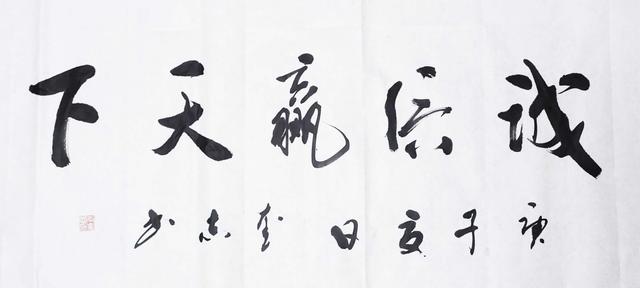 诚信赢天下
庚子夏日奎志书